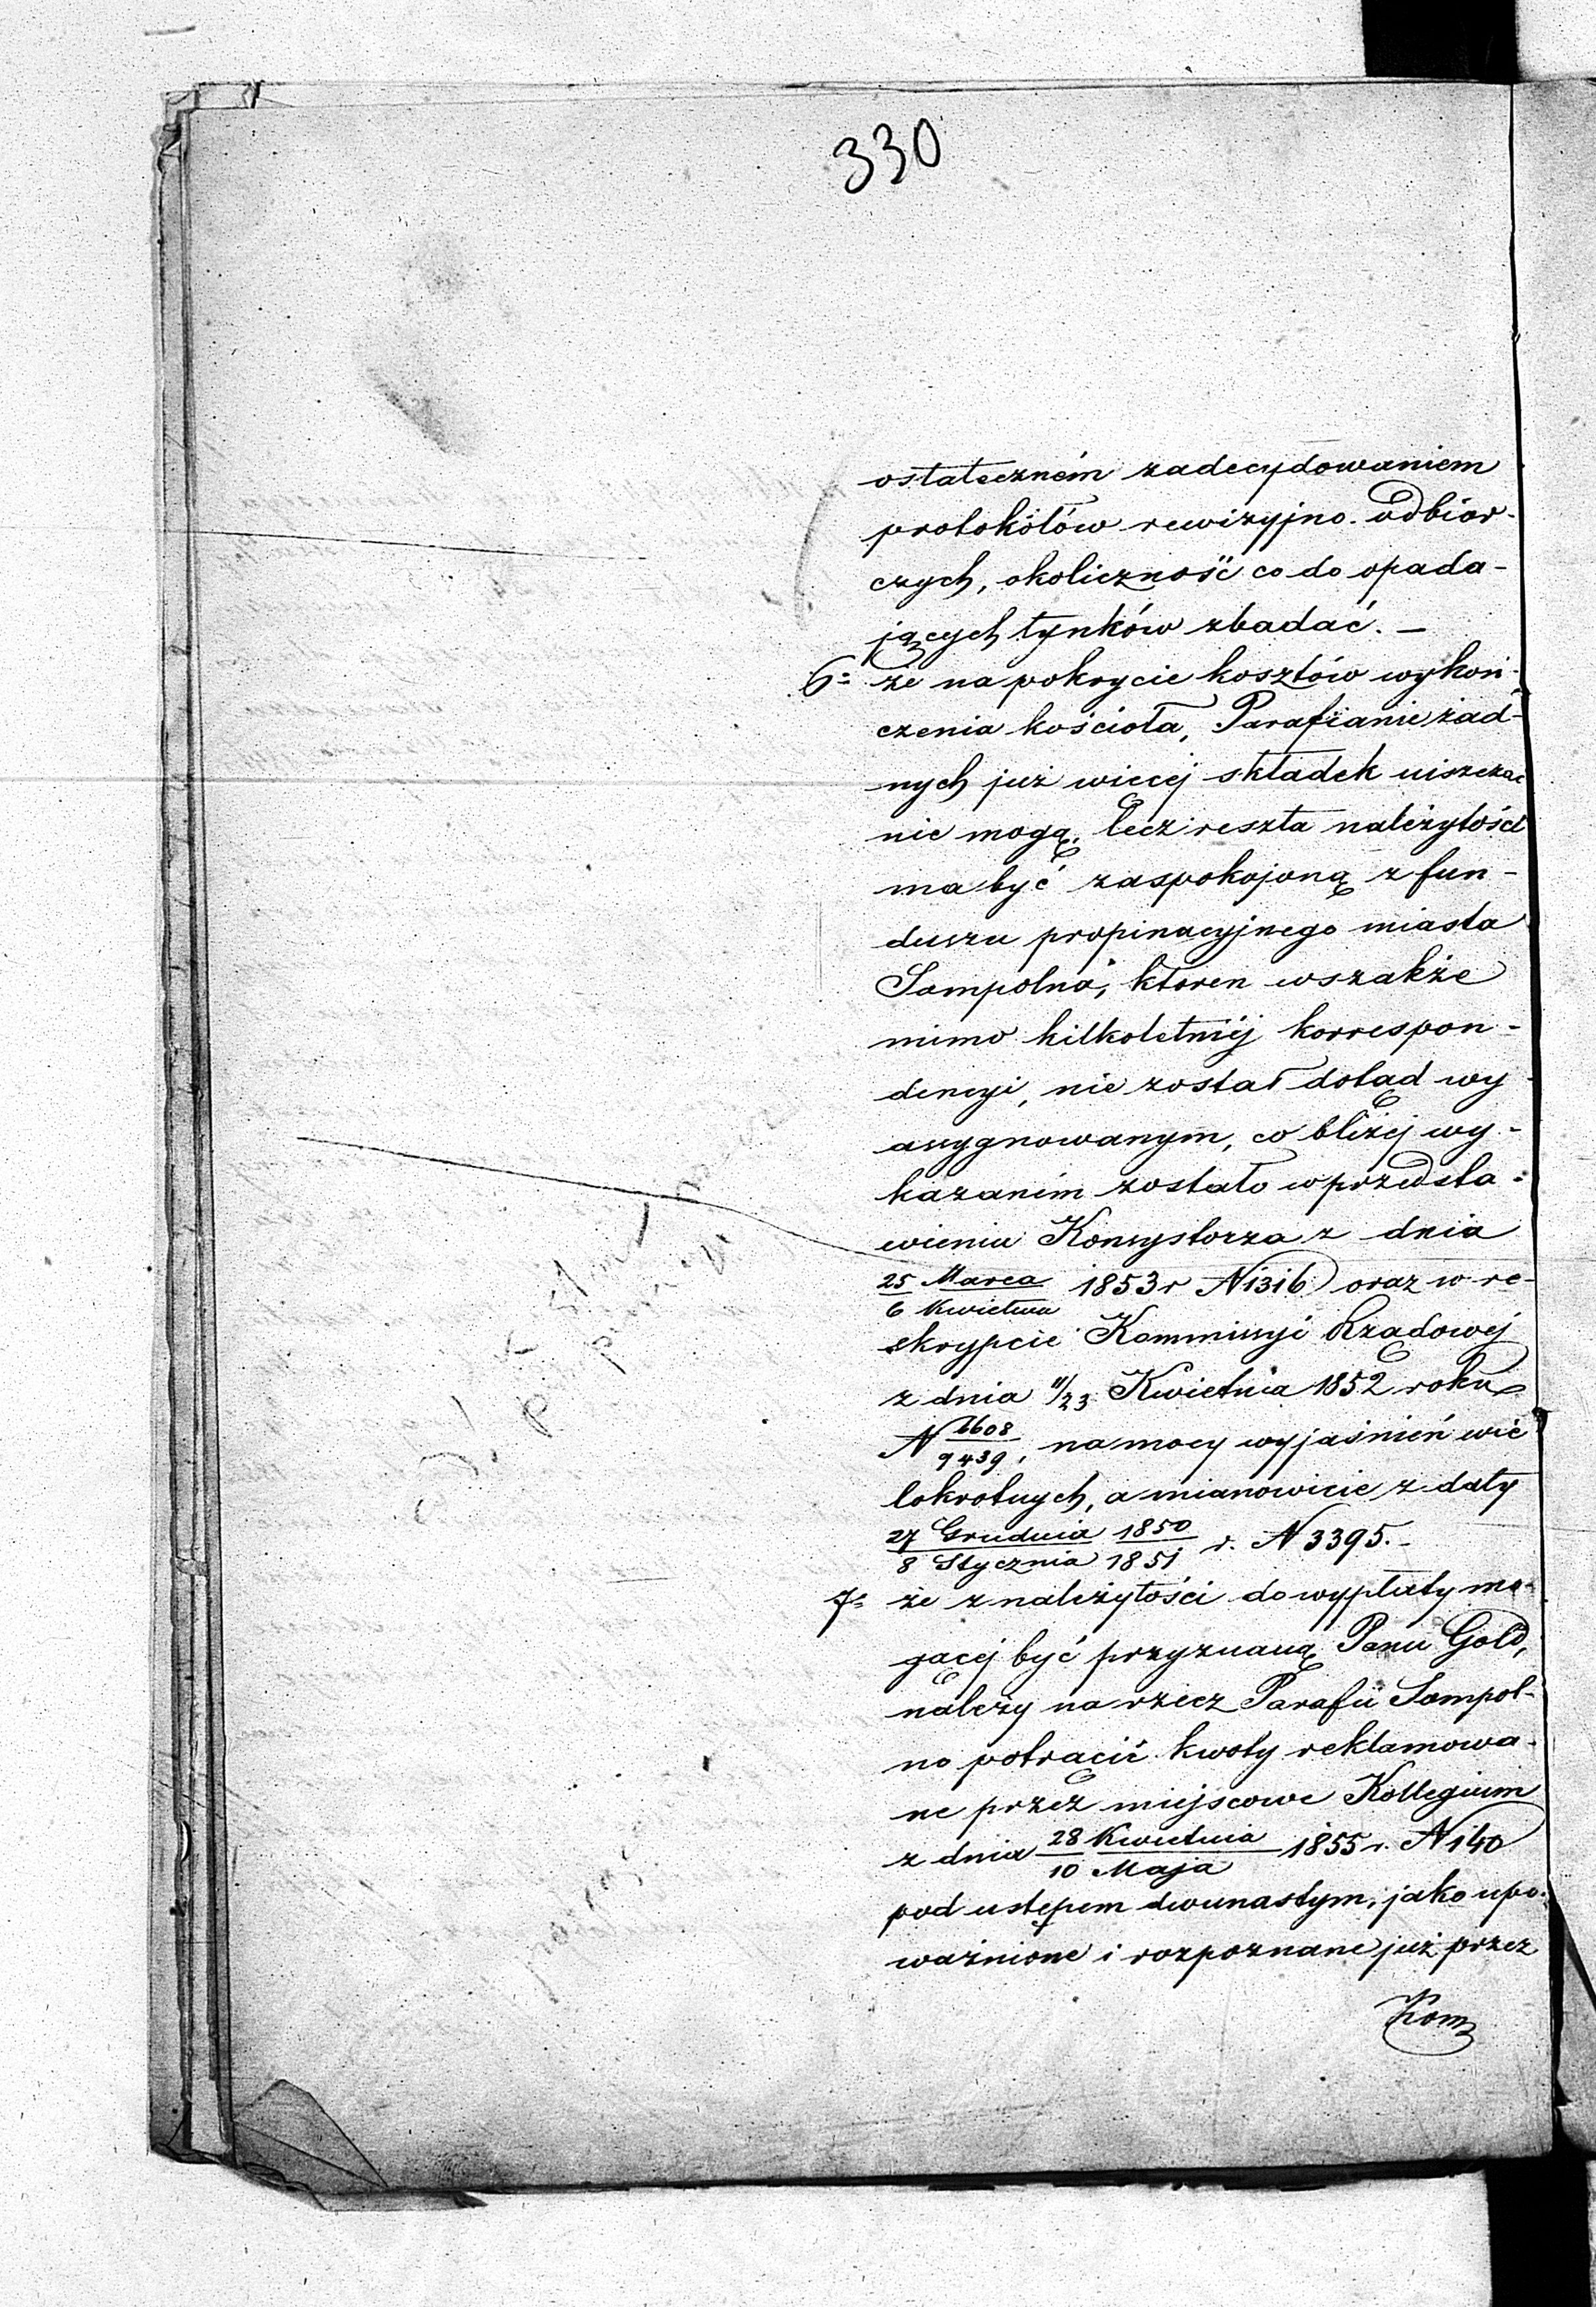 330
ostateczném zadecydowaniem
protokółów rewizyjno-odbior-
czych, okoliczność co do opada-
jących tynków zbadać. —
6= że na pokrycie kosztów wykoń-
czenia kościoła, Parafianie żad-
nych już więcej składek uiszczać
nie mogą, lecz reszta należytości
ma być zaspokojoną z fun-
duszu propinacyjnego miasta
Sompolna, któren wszakże
mimo kilkoletniéj korrespon-
dencyi, nie został dotąd wy-
asygnowanym, co bliżej wy-
kazaném zostało w przedsta-
wieniu Konsystorza z dnia
25 Marca / 6 Kwietnia 1853 r N 1316 oraz w re-
skrypcie Kommissyi Rządowej
z dnia 11/23 Kwietnia 1852 roku
N 6608/9439, na mocy wyjaśnień wie
lokrotnych, a mianowicie z daty
27 Grudnia 1850 / 8 Stycznia 1851 r. N 3395. –
7= że z należytości do wypłaty mo-
gącej być przyznaną Panu Gold,
należy na rzecz Parafii Sompol-
no potrącić kwoty reklamowa-
ne przez miejscowe Kollegium
z dnia 28 Kwietnia / 10 Maja 1855 r. N 140
pod ustępem dwunastym, jako upo-
ważnione i rozpoznane już przez
Kom